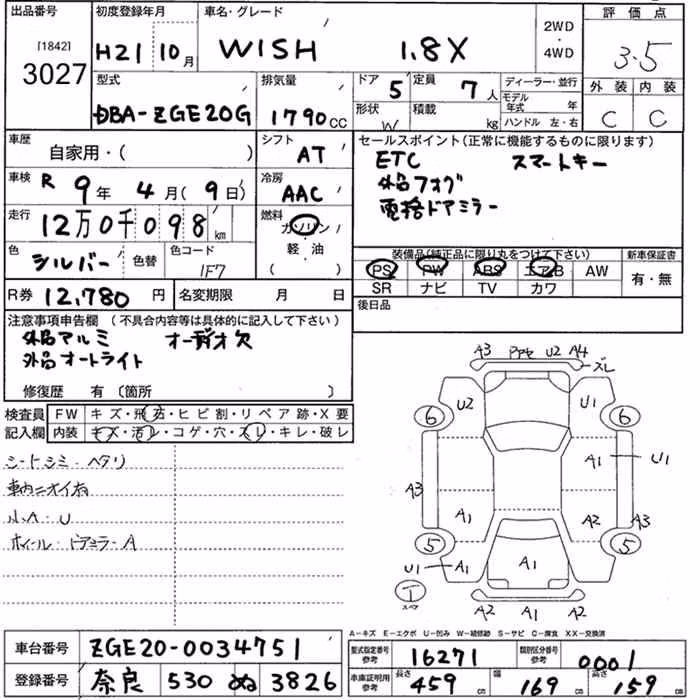 出品番号 初度登録年月 車名・グレード 2WD ・ 4WD 評価点
[1842] 3027 H21 10月 WISH 1.8X 3.5
型式 排気量 ドア 5 定員 7人 ディーラー・並行 外装 内装
DBA-ZGE20G 1790cc 形状 W 積載 kg モデル年式 年 ハンドル 左・右 C C
車歴 自家用・( ) シフト AT セールスポイント(正常に機能するものに限ります)
ETC スマートキー
車検 R 9年 4月(9日) 冷房 AAC 社外フォグ
電格ドアミラー
走行 12万0千098km 燃料 ガソリン 軽・油 ( )
色 シルバー 色替 色コード 1F7
装備品(純正品に限り丸をつけて下さい) 新車保証書
PS PW ABS エアB AW 有・無
SR ナビ TV カワ
R券 12,780円 名変期限 月 日 後日品
注意事項申告欄 (不具合内容等は具体的に記入して下さい)
社外アルミ オーディオ欠
社外オートライト
修復歴 有〔箇所 〕
検査員記入欄 FW キズ・飛石・ヒビ割・リペア跡・X要
内装 キズ・汚レ・コゲ・穴・スレ・キレ・破レ
シートシミ・ヘタリ
車内ニオイ有
小A・U
ホイール・ドアミラーA
A3 U2 A4 ズレ
U2 U1
6 6
A1 U1
A3
A1 A2 A3
5 5
U1 A1 A1 A1
T
A2 A1 A2
A-キズ E-エクボ U-凹み W-補修跡 S-サビ C-腐食 XX-交換済
車台番号 ZGE20-0034751 型式指定番号 参考 16271 類別区分番号 参考 0001
登録番号 奈良 530 ぬ 3826 車庫証明用 参考 長さ 459cm 幅 169cm 高さ 159cm